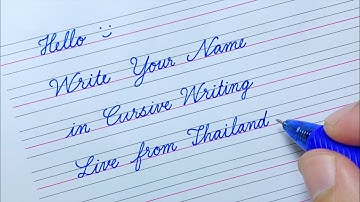 Hello :)
Write Your Name
in Cursive Writing
Live from Thailand